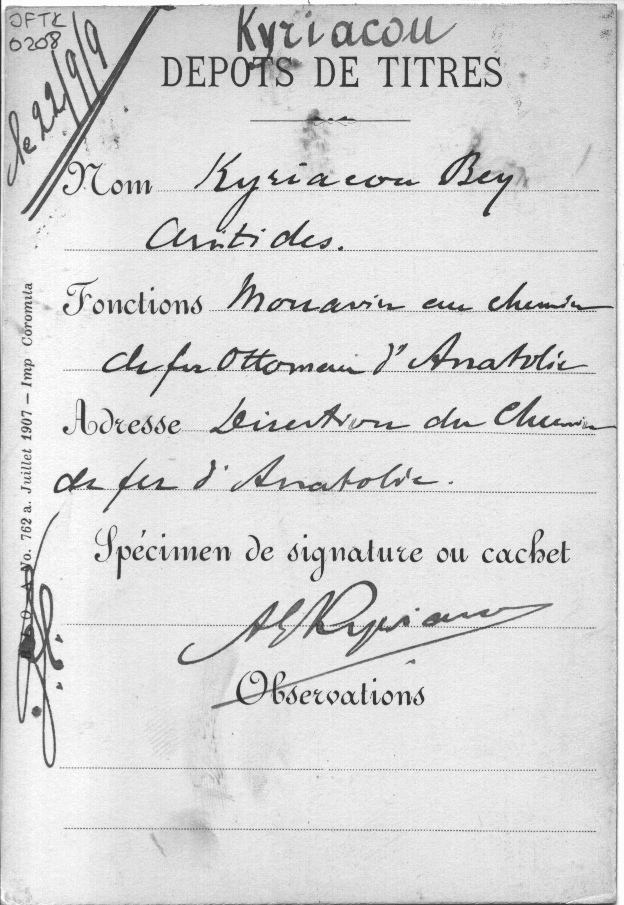 OFTK
0208
Kyriacou
le 22/9/9
DEPOTS DE TITRES
Nom Kyriacou Bey
Aristides.
Fonctions au chemin
de fer Ottoman d'Anatolie
Adresse Direction du Chemin
de fer d'Anatolie.
Spécimen de signature ou cachet
Kyriacou
Observations
No. 762 a. Juillet 1907 — Imp Coromila